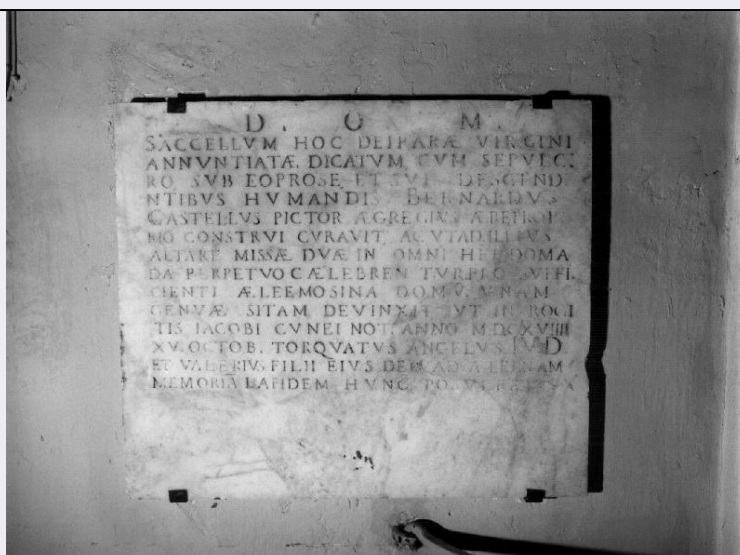 D. O M.
SACCELLVM HOC DEIPARÆ VIRGINI
ANNVNTIATÆ DICATVM CVM SEPVLC:
RO SVB EO PRO SE ET SVI DESCEND
NTIBVS HVMANDIS BERNARDVS
CASTELLVS PICTOR ÆGREGIVS
CONSTRVI CVRAVIT
ALTARE MISSÆ DVÆ IN OMNI HEBDOMA
DA PERPETVO CÆLEBREN TVR SVFFI.
CIENTI ÆLEEMOSINA DOMV VNAM
GENVÆ SITAM DEVINXIT VT IN ROGI
TIS IACOBI CVNEI NOT. ANNO M.DCXVIIII
XV. OCTOB. TORQVATVS ANGELVS I V D
ET VALERIVS FILII EIVS
MEMORIA LAPIDEM HVNC